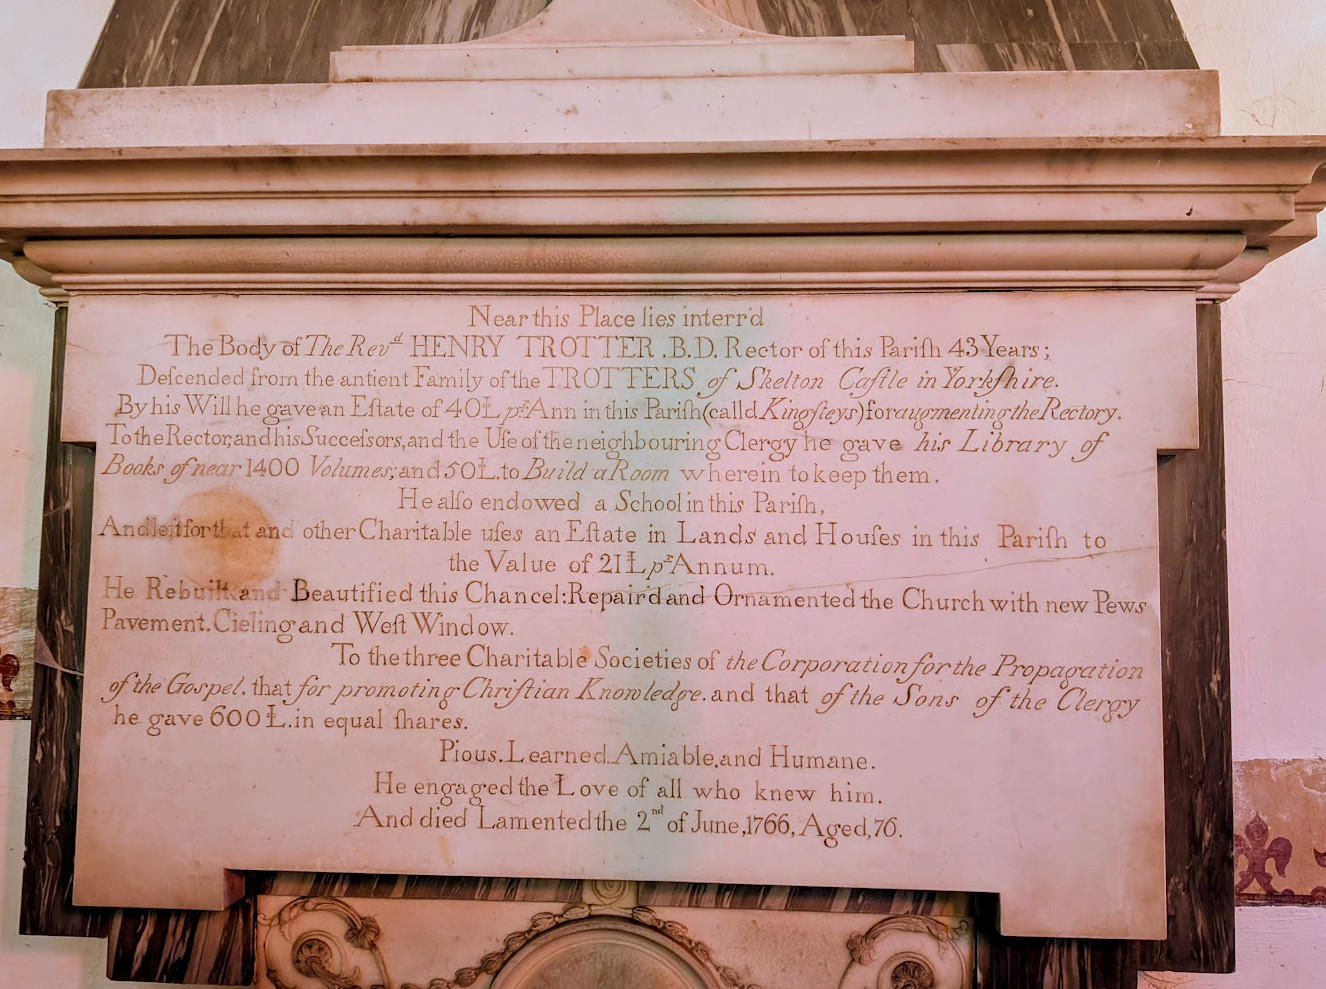 Near this Place lies interr'd
The Body of The Revd HENRY TROTTER. B.D. Rector of this Pariſh 43 Years;
Deſcended from the antient Family of the TROTTERS of Skelton Caſtle in Yorkſhire.
By his Will he gave an Eſtate of 40Ł pr Ann in this Pariſh (call'd Kingſleys) for augmenting the Rectory.
To the Rector, and his Succeſsors, and the Uſe of the neighbouring Clergy he gave his Library of
Books of near 1400 Volumes; and 50Ł. to Build a Room wherein to keep them.
He alſo endowed a School in this Pariſh,
And left for that and other Charitable uſes an Eſtate in Lands and Houſes in this Pariſh to
the Value of 21Ł pr Annum.
He Rebuilt and Beautified this Chancel: Repair'd and Ornamented the Church with new Pews
Pavement. Cieling and Weſt Window.
To the three Charitable Societies of the Corporation for the Propagation
of the Gospel. that for promoting Chriſtian Knowledge. and that of the Sons of the Clergy
he gave 600Ł. in equal ſhares.
Pious. Learned. Amiable. and Humane.
He engaged the Love of all who knew him.
And died Lamented the 2nd of June, 1766, Aged, 76.